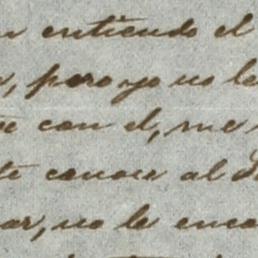 n entiendo el
, pero yo no le
con el, me
te conocer al
ar, no le enco